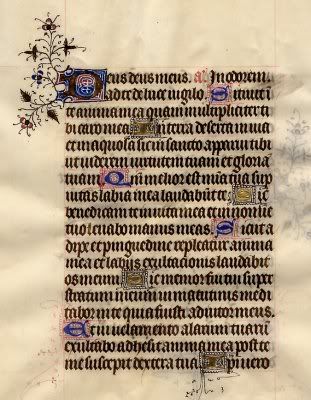 Deus deus meus. a. In dorem.
ad te de luce vigilo. Sitiuit in
te anima mea quam multipliciter ti
bi caro mea. In terra deserta inuia
et inaquosa sic in sancto apparui tibi
ut viderem uirtutem tuam et gloriā
tuam. Qm̄ melior est mīa tua sup
uitas labia mea laudabūt te. Sic
benedicam te in uita mea et in nomīe
tuo leuabo manus meas. Sicut a
dipe et pinguedine repleatur anima
mea et labijs exultacionis laudabit
os meum. Sic memor fui tui super
stratum meum in matutinis medi
tabor in te quia fuisti adiutor meus.
Et in uelamento alarum tuarū
exultabo adhesit anima mea post te
me suscepit dextera tua. Ipsi uero